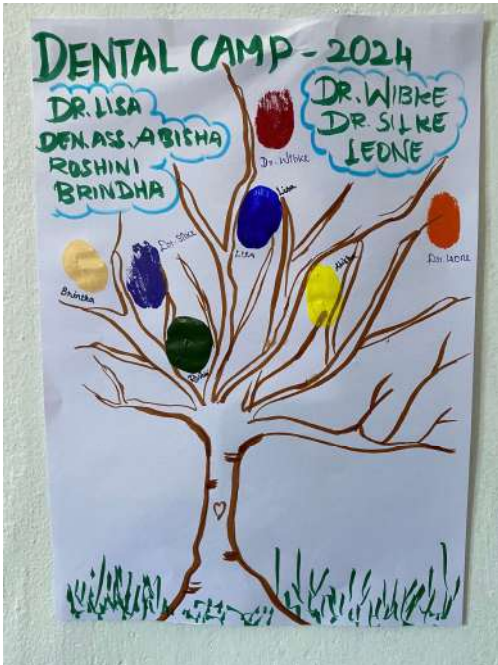 DENTAL CAMP - 2024
DR. LISA
DEN.ASS. ABISHA
ROSHINI
BRINDHA
DR. WIBKE
DR. SILKE
LEONE
Dr. Wibke
Lisa
Lisa
Dr. Silke
Dr. Leone
Brindha